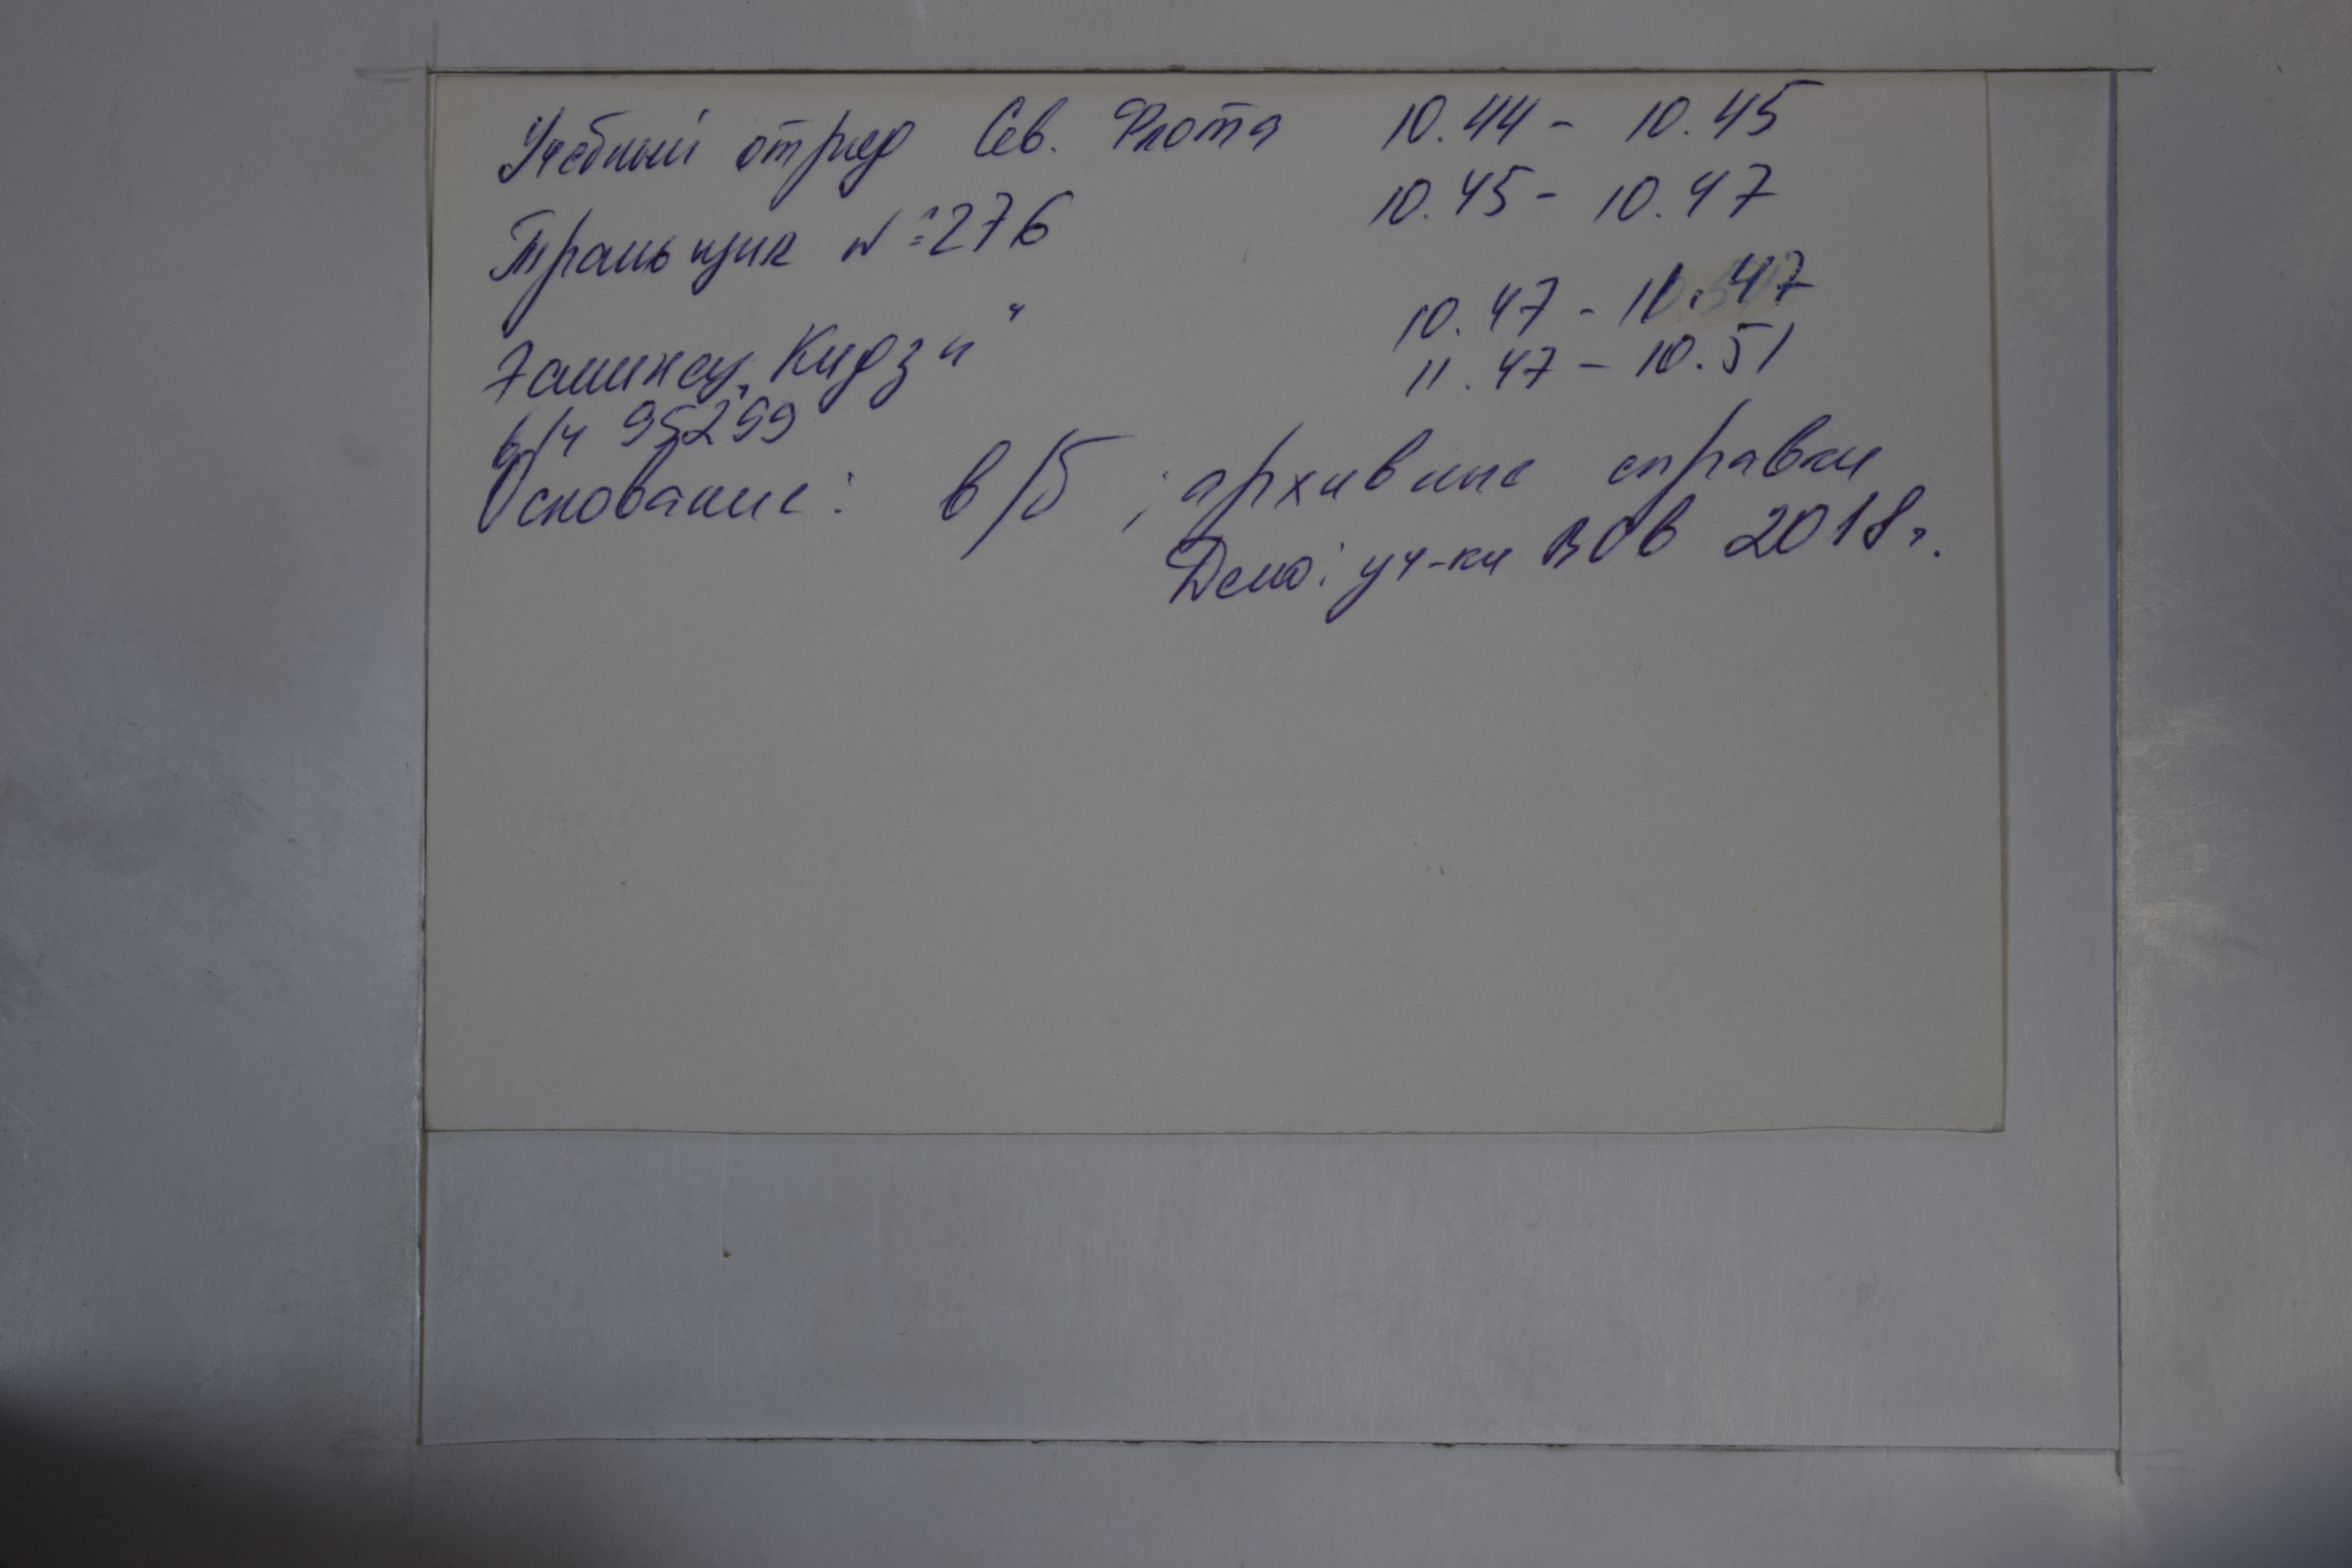 Учебный отряд Сев. Флота 10.44 - 10.45
Тральщик №276 10.45 - 10.47
"Кидзи" 10.47 - 11.47
в/ч 95299 11.47 - 10.51
Основание: в/б; архивные справки
Дело: уч-ки ВОв 2018г.